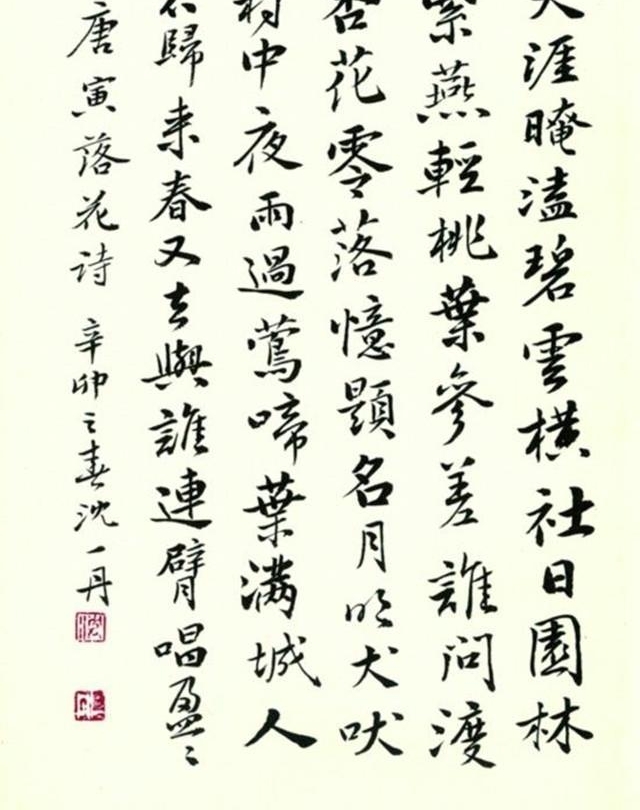 天涯晻溘碧雲橫社日園林
紫燕輕桃葉參差誰問渡
杏花零落憶題名月明犬吠
村中夜雨過鶯啼葉滿城人
不歸来春又去與誰連臂唱盈々
唐寅落花詩 辛卯之春沈一丹